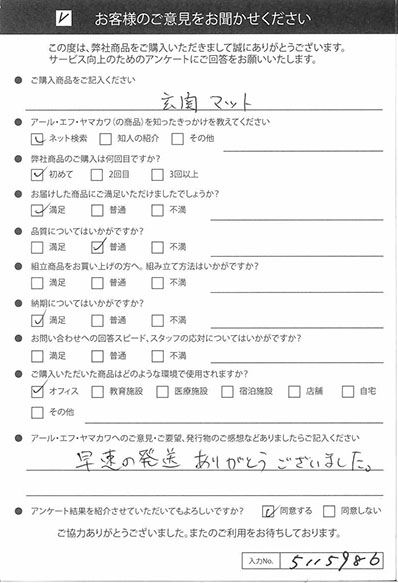 ☑ お客様のご意見をお聞かせください
この度は、弊社商品をご購入いただきまして誠にありがとうございます。
サービス向上のためのアンケートにご回答をお願いいたします。
● ご購入商品をご記入ください
玄関マット
● アール・エフ・ヤマカワ(の商品)を知ったきっかけを教えてください
☑ ネット検索 □ 知人の紹介 □ その他
● 弊社商品のご購入は何回目ですか?
☑ 初めて □ 2回目 □ 3回以上
● お届けした商品にご満足いただけましたでしょうか?
☑ 満足 □ 普通 □ 不満
● 品質についてはいかがですか?
□ 満足 ☑ 普通 □ 不満
● 組立商品をお買い上げの方へ。組み立て方法はいかがですか?
□ 満足 □ 普通 □ 不満
● 納期についてはいかがですか?
☑ 満足 □ 普通 □ 不満
● お問い合わせへの回答スピード、スタッフの応対についてはいかがですか?
□ 満足 □ 普通 □ 不満
● ご購入いただいた商品はどのような環境で使用されますか?
☑ オフィス □ 教育施設 □ 医療施設 □ 宿泊施設 □ 店舗 □ 自宅
□ その他
● アール・エフ・ヤマカワへのご意見・ご要望、発行物のご感想などありましたらご記入ください
早速の発送 ありがとうございました。
● アンケート結果を紹介させていただいてもよろしいですか? ☑ 同意する □ 同意しない
ご協力ありがとうございました。またのご利用をお待ちしております。
入力No. 5115986